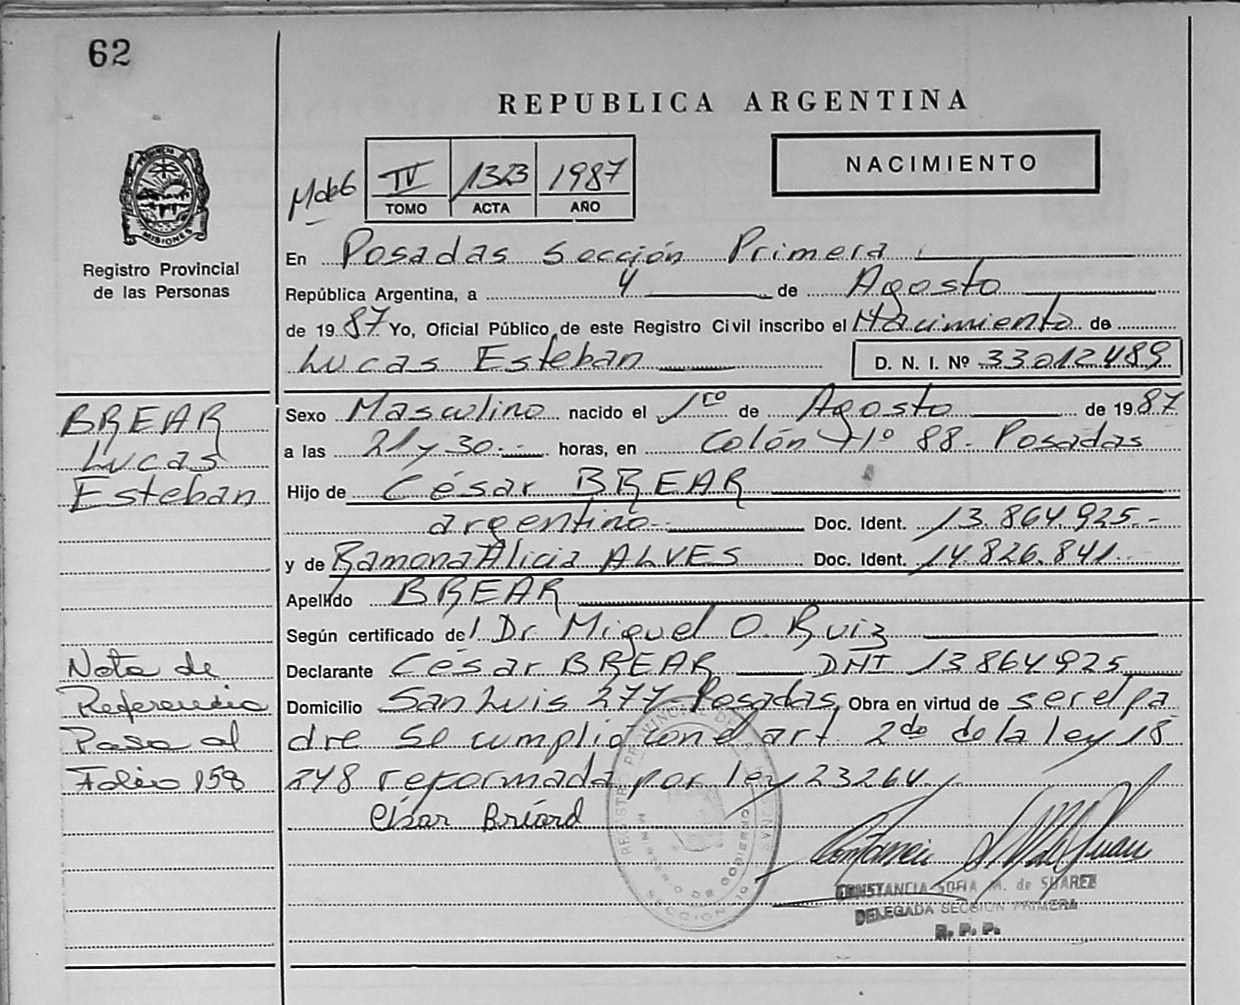 62
REPUBLICA ARGENTINA
NACIMIENTO
TV 1323 1987
TOMO ACTA AÑO
PROVINCIA DE MISIONES
Registro Provincial
de las Personas
En Posadas Sección Primera
República Argentina, a 4 de Agosto
de 1987 Yo, Oficial Público de este Registro Civil inscribo el Nacimiento de
Lucas Esteban D. N. I. Nº 33012489
BREAR
Lucas
Esteban
Sexo Masculino nacido el 1ro de Agosto de 1987
a las 21 y 30 horas, en Colón nº 88 - Posadas
Hijo de César BREAR
argentino Doc. Ident. 13.864.925.-
y de Ramona Alicia ALVES Doc. Ident. 14.826.841
Apellido BREAR
Según certificado del Dr. Miguel O. Ruiz
Declarante César BREAR DNI 13.864925
Domicilio San Luis 277 Posadas Obra en virtud de ser el pa
dre Se cumplio con el art 2do de la ley 18
248 reformada por ley 23264
Nota de
Referencia
Pasa al
Folio 158
César Briard
CONSTANCIA SOFIA M. de SUAREZ
DELEGADA SECCION PRIMERA
R. P. P.